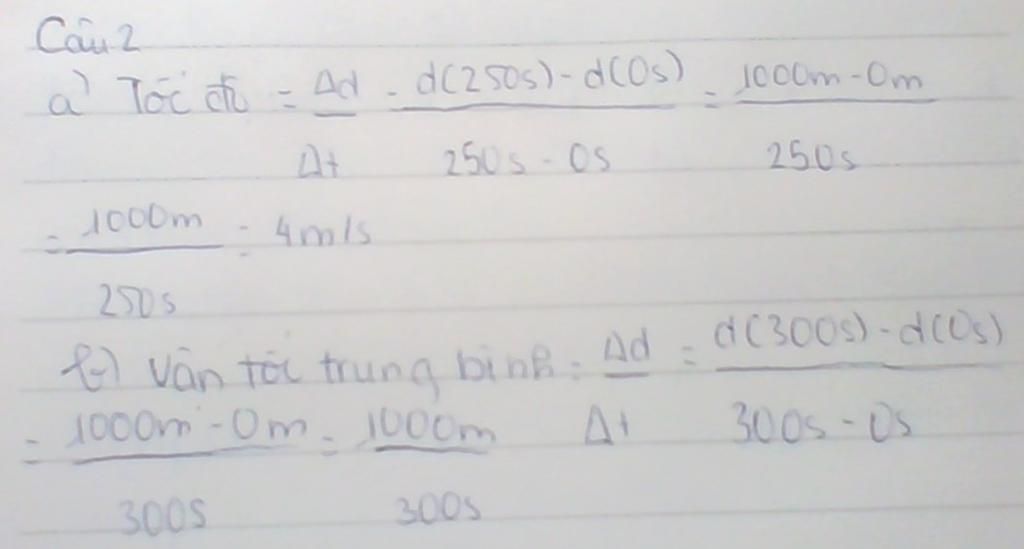 Câu 2
a) Tốc độ = Δd/Δt = d(250s) - d(0s)/250s - 0s = 1000m - 0m/250s
= 1000m/250s = 4m/s
b) Vận tốc trung bình = Δd/Δt = d(300s) - d(0s)/300s - 0s
= 1000m - 0m/300s = 1000m/300s